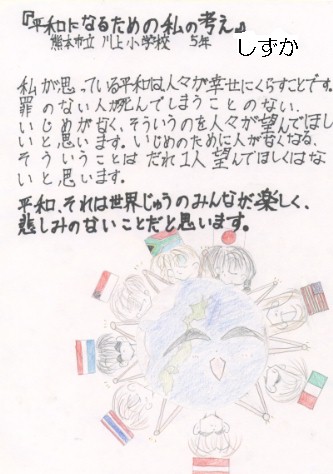 『平和になるための私の考え』
熊本市立 川上小学校 5年
しずか
私が思っている平和は人々が幸せにくらすことです。
罪のない人が死んでしまうことのない、
いじめがなく、そういうのを人々が望んでほし
いと思います。いじめのために人がなくなる、
そういうことはだれ1人望んでほしくはな
いと思います。
平和、それは世界じゅうのみんなが楽しく、
悲しみのないことだと思います。